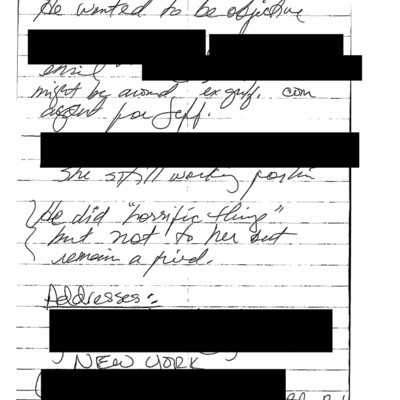 He wanted to be objective
email
might be around ex gulf. com
agent for Jeff.
She still working
He did "horrific things"
but not to her but
remain a
Addresses:
NEW YORK